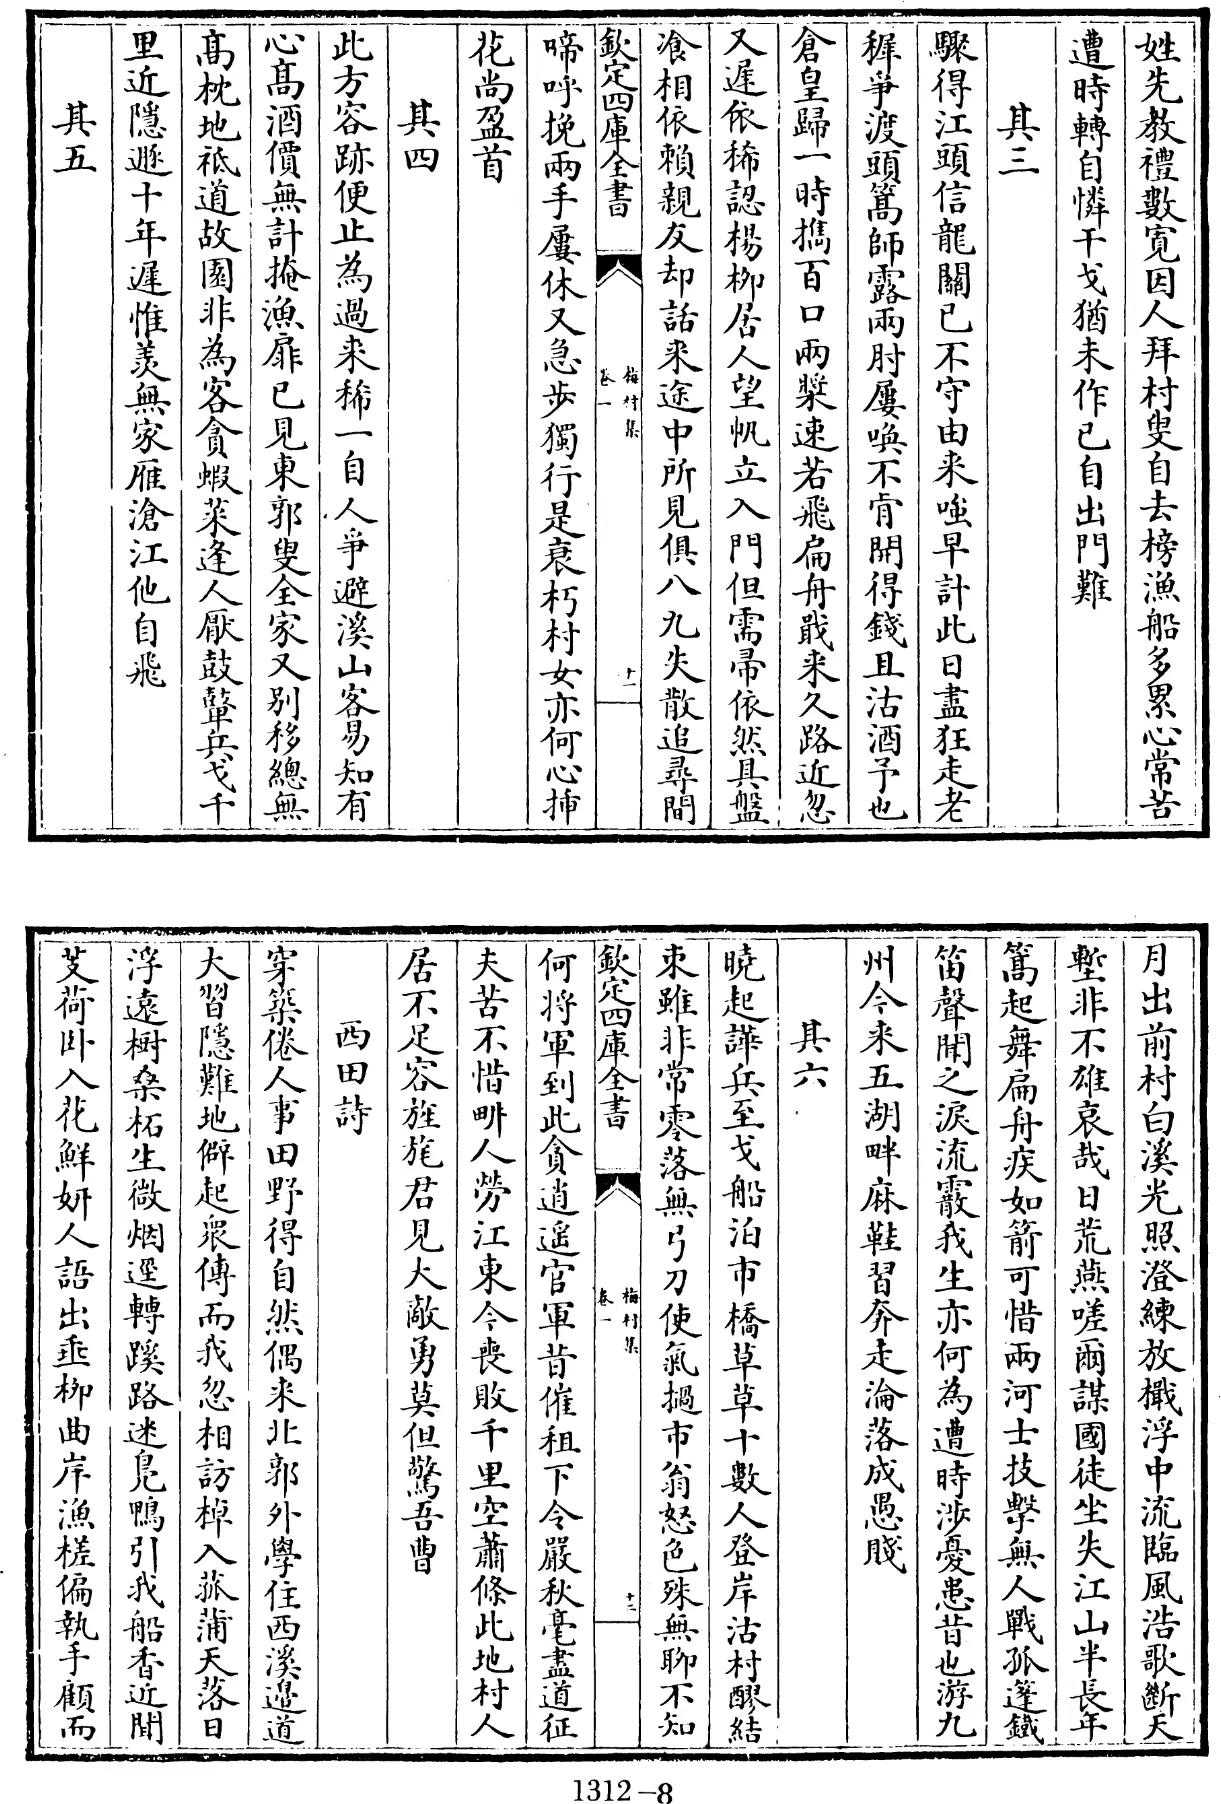 姓先教禮數寛因人拜村叟自去榜漁船多累心常苦
遭時轉自憐干戈猶未作已自出門難
其三
驟得江頭信龍關已不守由来嗤早計此日盡狂走老
穉爭渡頭篙師露兩肘屢喚不肎開得錢且沽酒予也
倉皇歸一時擕百口兩槳速若飛扁舟戢来久路近忽
又遲依稀認楊柳居人望帆立入門但需帚依然具盤
飡相依賴親友却話来途中所見俱八九失散追尋間
欽定四庫全書
梅村集
卷一
十一
啼呼挽兩手屢休又急步獨行是衰朽村女亦何心挿
花尚盈首
其四
此方容跡便止為過来稀一自人爭避溪山客易知有
心髙酒價無計掩漁扉已見東郭叟全家又别移總無
髙枕地祗道故園非為客貪蝦菜逢人厭鼓鼙兵戈千
里近隱遯十年遲惟羡無家雁滄江他自飛
其五
月出前村白溪光照澄練放櫂浮中流臨風浩歌斷天
塹非不雄哀哉日荒燕嗟爾謀國徒坐失江山半長年
篙起舞扁舟疾如箭可惜兩河士技擊無人戰孤篷鐵
笛聲聞之淚流霰我生亦何為遭時渉憂患昔也游九
州今来五湖畔麻鞋習奔走淪落成愚賤
其六
曉起譁兵至戈船泊市橋草草十數人登岸沽村醪結
束雖非常零落無弓刀使氣撾市翁怒色殊無聊不知
欽定四庫全書
梅村集
卷一
十二
何将軍到此貪逍遥官軍昔催租下令嚴秋毫盡道征
夫苦不惜畊人勞江東今喪敗千里空蕭條此地村人
居不足容旌旄君見大敵勇莫但驚吾曹
西田詩
穿築倦人事田野得自然偶来北郭外學住西溪邉道
大習隱難地僻起衆傳而我忽相訪棹入菰蒲天落日
浮遠樹桑柘生微烟逕轉蹊路迷鳬鴨引我船香近聞
芰荷卧入花鮮妍人語出垂柳曲岸漁槎偏執手顧而
1312-8